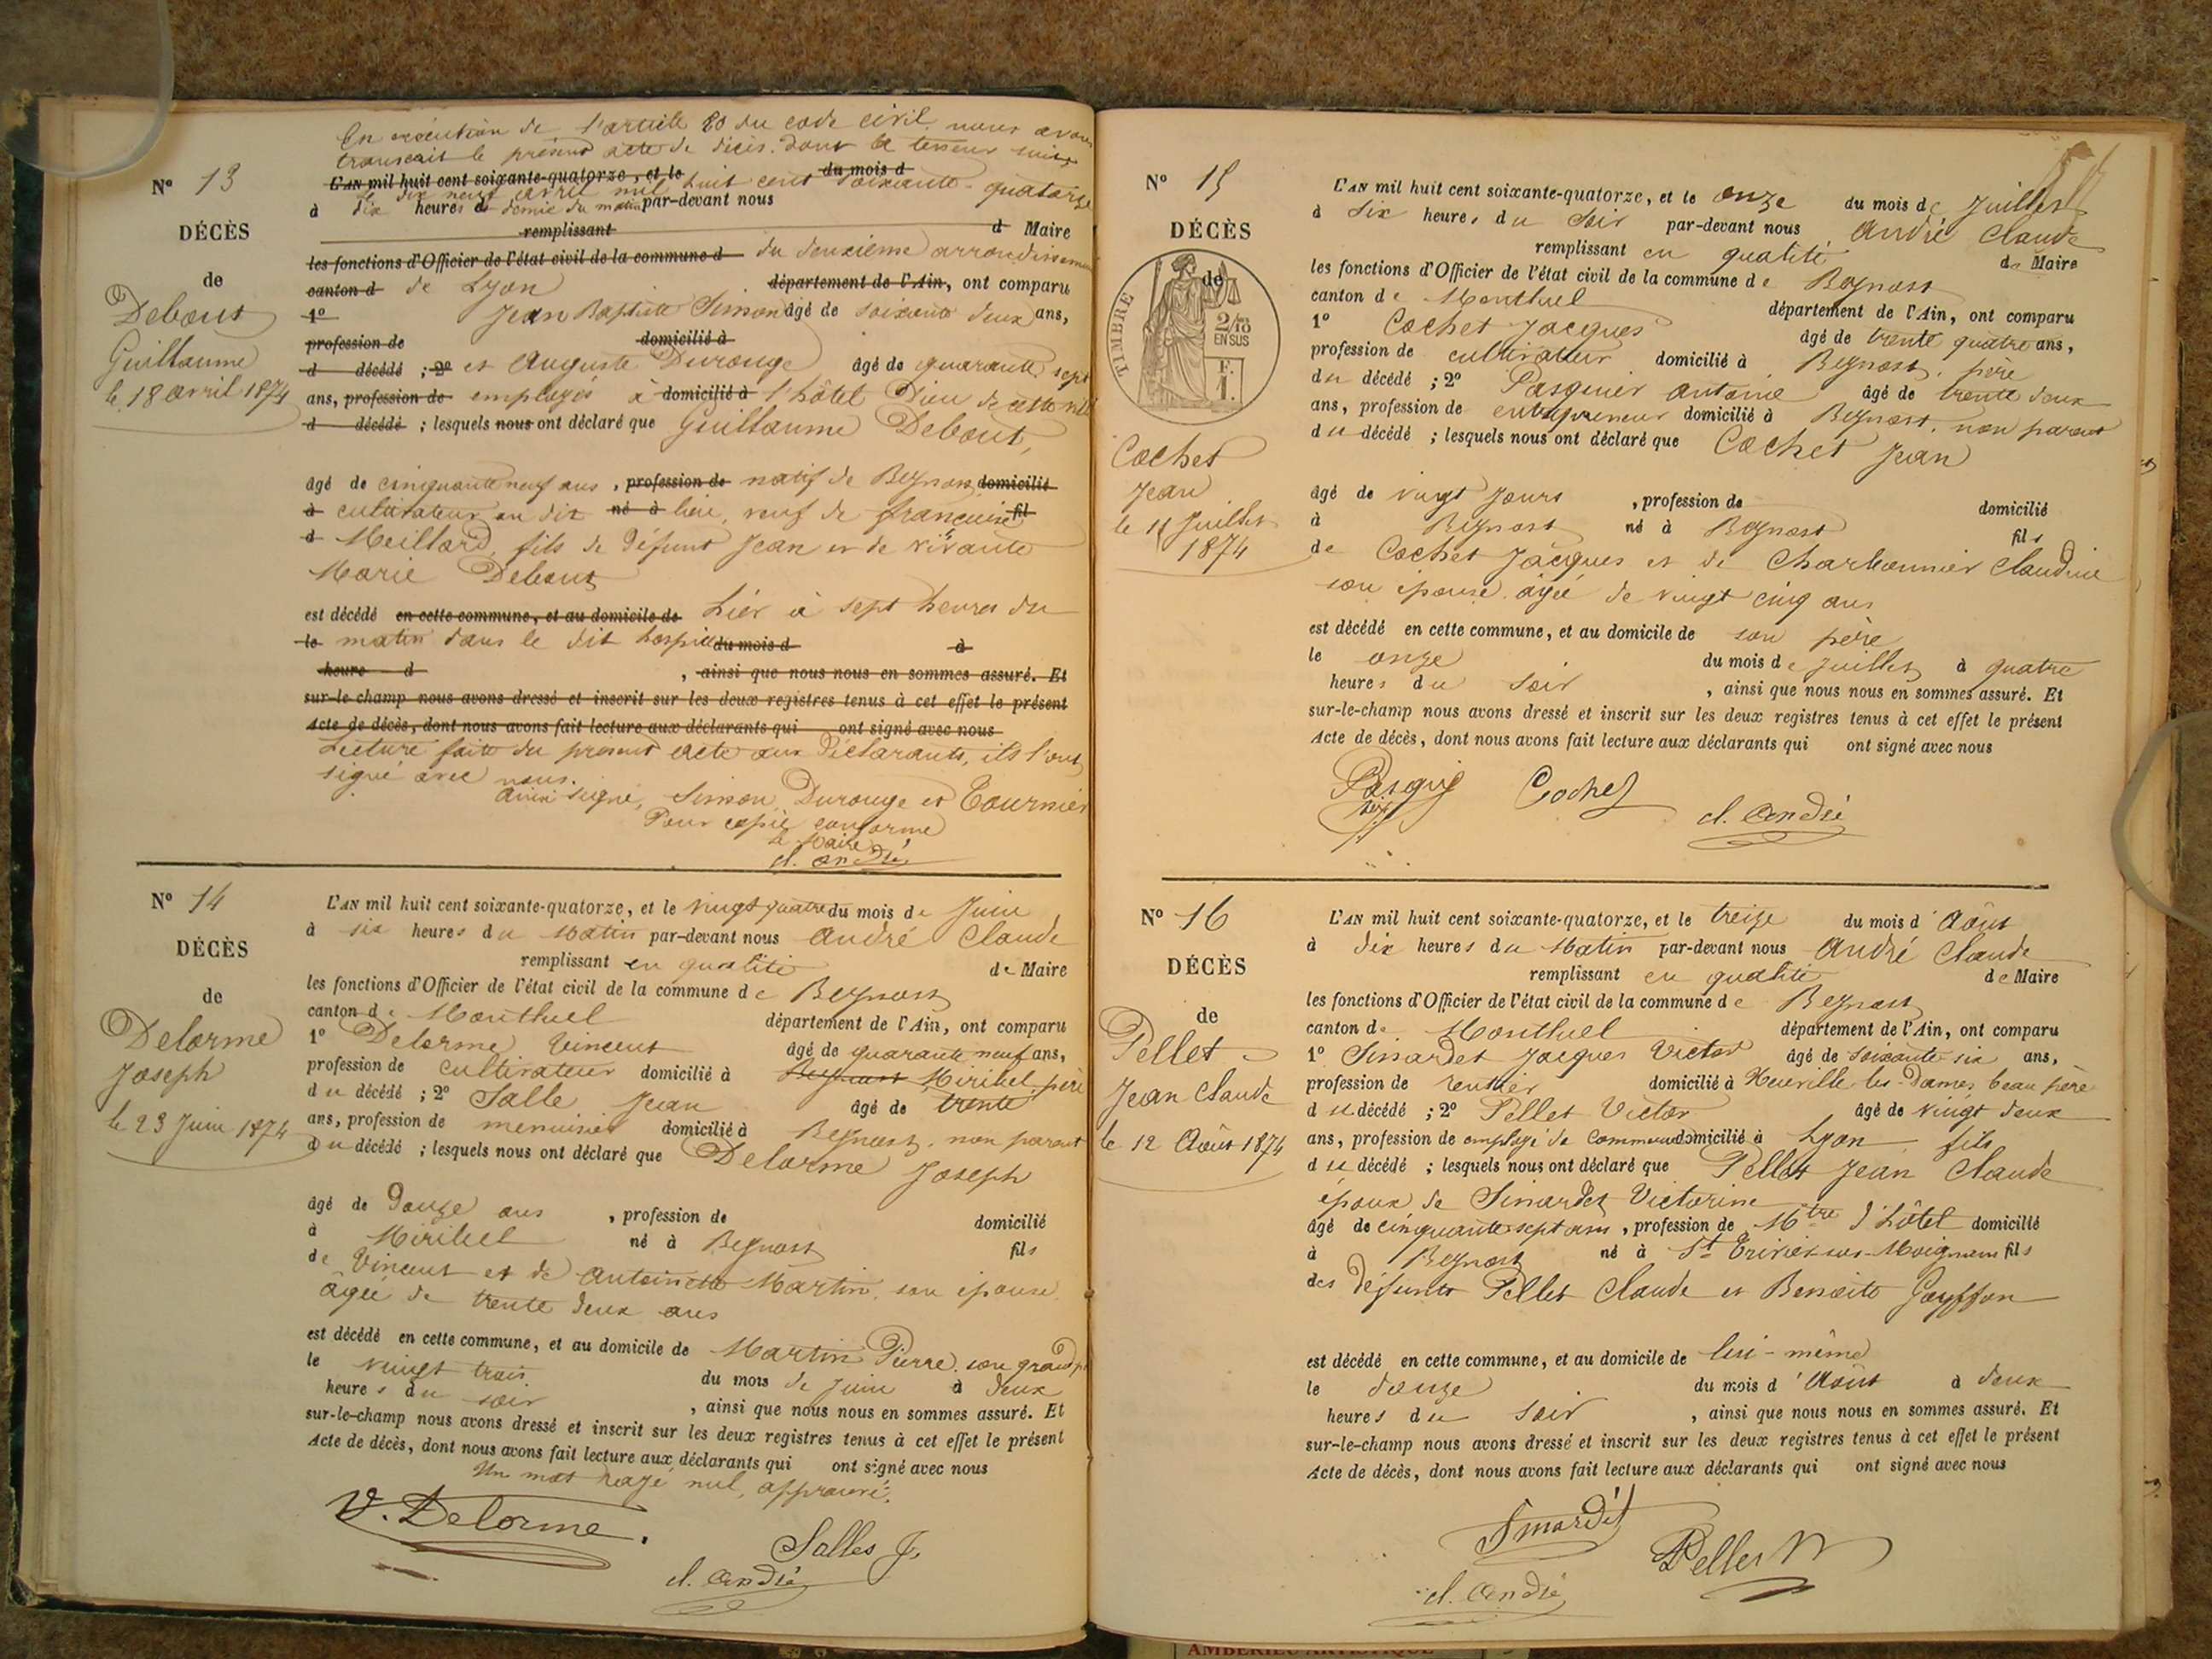 En exécution de l'article 80 du code civil, nous avons
transcrit le présent acte de décès dont la teneur suit,
N° 13
L'AN mil huit cent soixante-quatorze, et le du mois d
le dix neuf avril mil huit cent soixante-quatorze
à dix heures et demie du matin par-devant nous
DÉCÈS
remplissant d Maire
les fonctions d'Officier de l'état civil de la commune d du deuxième arrondissement
de
canton d de Lyon département de l'Ain, ont comparu
Debout
1° Jean Baptiste Simon âgé de soixante deux ans,
profession de domicilié à
Guillaume
d décédé ; 2° et Auguste Durouge âgé de quarante sept
le 18 avril 1874
ans, profession de employés à domicilié à l'hôtel Dieu de cette ville
d décédé ; lesquels nous ont déclaré que Guillaume Debout,
âgé de cinquante neuf ans, profession de natif de Beynost, domicilié
à cultivateur au dit né à lieu, veuf de françoise fil
d Meillard, fils de défunt Jean et de vivante
Marie Debout
est décédé en cette commune, et au domicile de hier à sept heures du
le matin dans le dit hospice du mois d à
heure d , ainsi que nous nous en sommes assuré. Et
sur-le champ nous avons dressé et inscrit sur les deux registres tenus à cet effet le présent
Acte de décès, dont nous avons fait lecture aux déclarants qui ont signé avec nous
Lecture faite du present acte aux déclarants, ils l'ont
signé avec nous.
Ainsi signé, Simon, Durouge et Tournier
Pour copie conforme
le Maire
cl. andré
N° 14
L'AN mil huit cent soixante-quatorze, et le vingt quatre du mois de Juin
à six heures du Matin par-devant nous André Claude
DÉCÈS
remplissant en qualité de Maire
de
les fonctions d'Officier de l'état civil de la commune de Beynost
canton de Montluel département de l'Ain, ont comparu
Delorme
1° Delorme Vincent âgé de quarante neuf ans,
Joseph
profession de cultivateur domicilié à Beynost Miribel, père
du décédé ; 2° Salle Jean âgé de trente
le 23 Juin 1874
ans, profession de menuisier domicilié à Beynost, non parent
du décédé ; lesquels nous ont déclaré que Delorme Joseph
âgé de Douze ans , profession de domicilié
à Miribel né à Beynost fils
de Vincent et de Antoinette Martin, son épouse,
âgée de trente deux ans
est décédé en cette commune, et au domicile de Martin Pierre, son grand
le vingt trois du mois de Juin à deux
heures du soir , ainsi que nous nous en sommes assuré. Et
sur-le-champ nous avons dressé et inscrit sur les deux registres tenus à cet effet le présent
Acte de décès, dont nous avons fait lecture aux déclarants qui ont signé avec nous
Un mot rayé nul, approuvé.
V. Delorme.
Salles J,
cl. andré
N° 15
L'AN mil huit cent soixante-quatorze, et le onze du mois de Juillet
à Six heures du Soir par-devant nous André Claude
DÉCÈS
remplissant en qualité de Maire
de
les fonctions d'Officier de l'état civil de la commune de Beynost
TIMBRE
2/10 EN SUS
F. 1.
canton de Montluel département de l'Ain, ont comparu
1° Cochet Jacques âgé de trente quatre ans,
profession de cultivateur domicilié à Beynost, père
du décédé ; 2° Pasquier antoine âgé de trente deux
ans, profession de entrepreneur domicilié à Beynost, non parent
du décédé ; lesquels nous ont déclaré que Cochet Jean
Cochet
Jean
le 11 Juillet
1874
âgé de vingt Jours , profession de domicilié
à Beynost né à Beynost fils
de Cochet Jacques et de Charbonnier Claudine
son épouse, âgée de vingt cinq ans
est décédé en cette commune, et au domicile de son père
le onze du mois de Juillet à quatre
heures du soir , ainsi que nous nous en sommes assuré. Et
sur-le-champ nous avons dressé et inscrit sur les deux registres tenus à cet effet le présent
Acte de décès, dont nous avons fait lecture aux déclarants qui ont signé avec nous
Cochet
cl. andré
N° 16
L'AN mil huit cent soixante-quatorze, et le treize du mois d'Août
à dix heures du Matin par-devant nous André Claude
DÉCÈS
remplissant en qualité de Maire
de
les fonctions d'Officier de l'état civil de la commune de Beynost
canton de Montluel département de l'Ain, ont comparu
Pellet
1° Sinardet Jacques Victor âgé de soixante-six ans,
Jean Claude
profession de rentier domicilié à Neuville-les-Dames, beau père
du décédé ; 2° Pellet Victor âgé de vingt deux
le 12 Août 1874
ans, profession de employé de Commerce domicilié à Lyon fils
du décédé ; lesquels nous ont déclaré que Pellet Jean Claude
époux de Sinardet Victorine
âgé de cinquante sept ans, profession de Mtre d'hôtel domicilié
à Beynost né à St Trivier-sur-Moignans fils
des défunts Pellet Claude et Benoite Goyffon
est décédé en cette commune, et au domicile de lui-même
le douze du mois d'Août à deux
heures du soir , ainsi que nous nous en sommes assuré. Et
sur-le-champ nous avons dressé et inscrit sur les deux registres tenus à cet effet le présent
Acte de décès, dont nous avons fait lecture aux déclarants qui ont signé avec nous
Sinardet
Pellet V
cl. andré